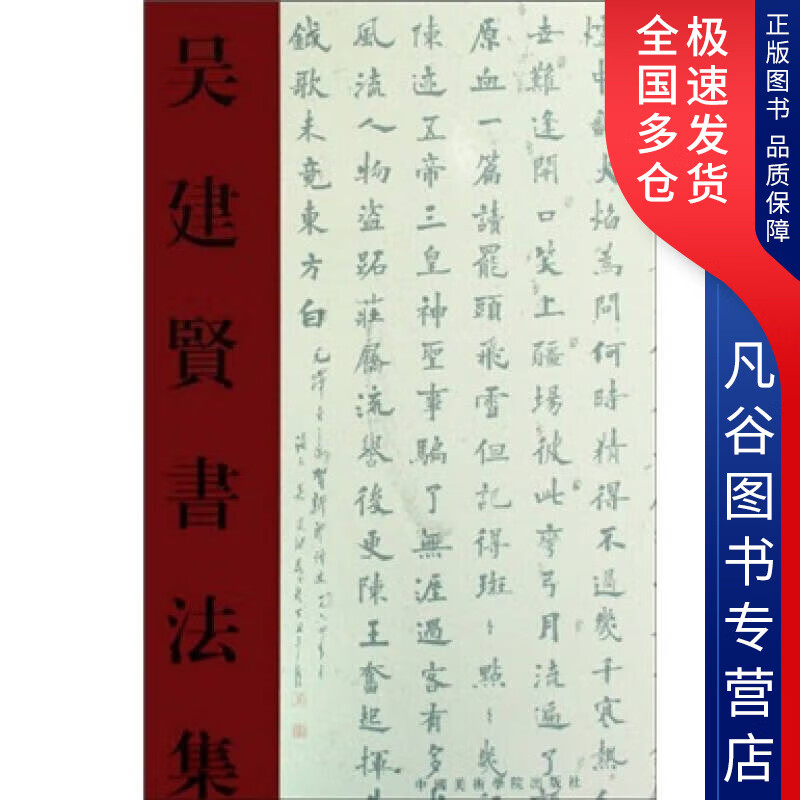 吴建賢書法集
中翻火焰為問何時猜得不過幾千寒熱
世難逢開口笑上疆場彼此彎弓月流遍了
原血一篇讀罷頭飛雪但記得斑〻點〻幾
陳迹五帝三皇神聖事騙了無涯過客有多
風流人物盜跖莊蹻流譽後更陳王奮起揮
鉞歌未竟東方白
中國美術學院出版社
极速发货
全国多仓
正版图书 品质保障
凡谷图书专营店